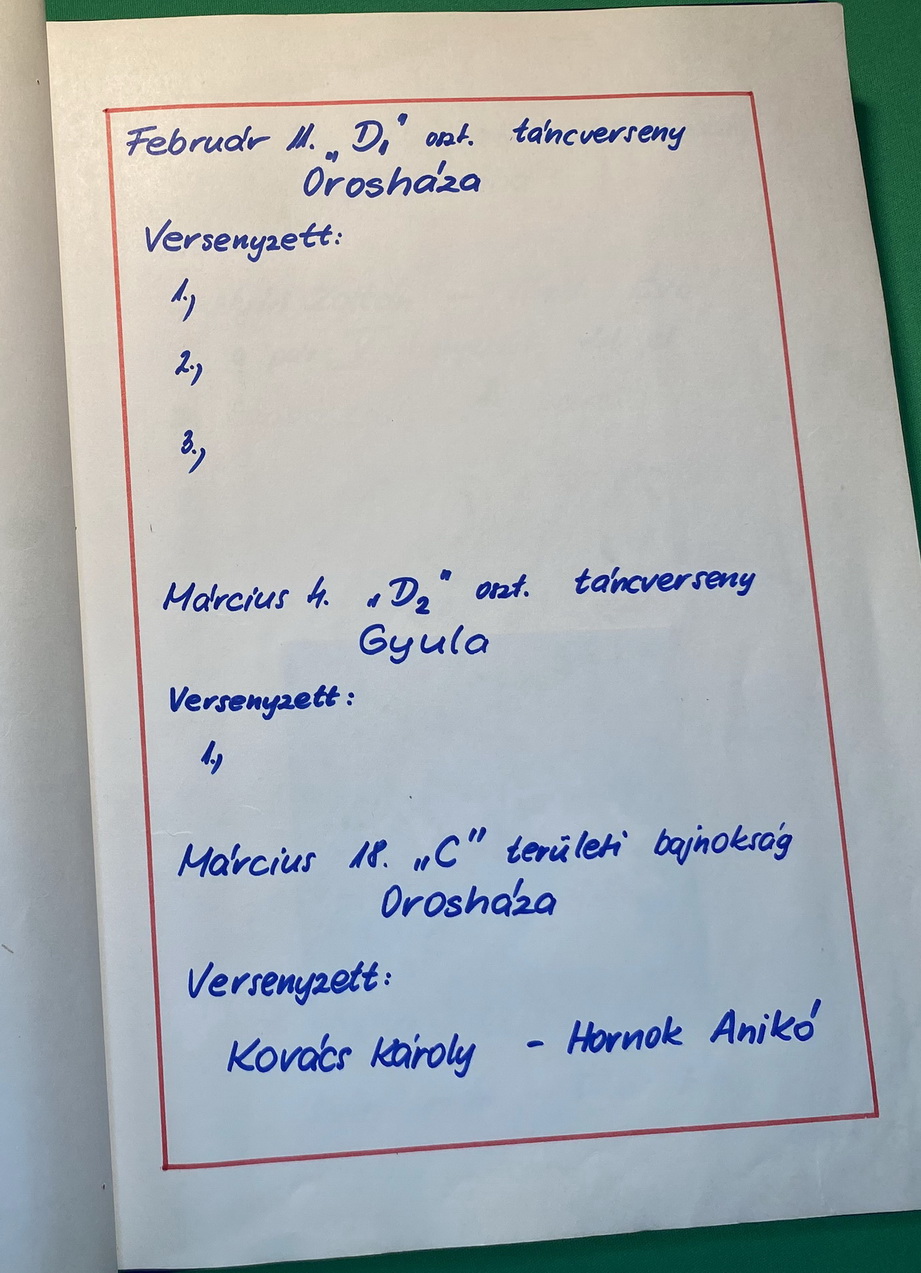 Február 11. „D₁" oszt. táncverseny
Orosháza
Versenyzett:
1.,
2.,
3.,
Március 4. „D₂" oszt. táncverseny
Gyula
Versenyzett:
1.,
Március 18. „C" területi bajnokság
Orosháza
Versenyzett:
Kovács Károly - Hornok Anikó